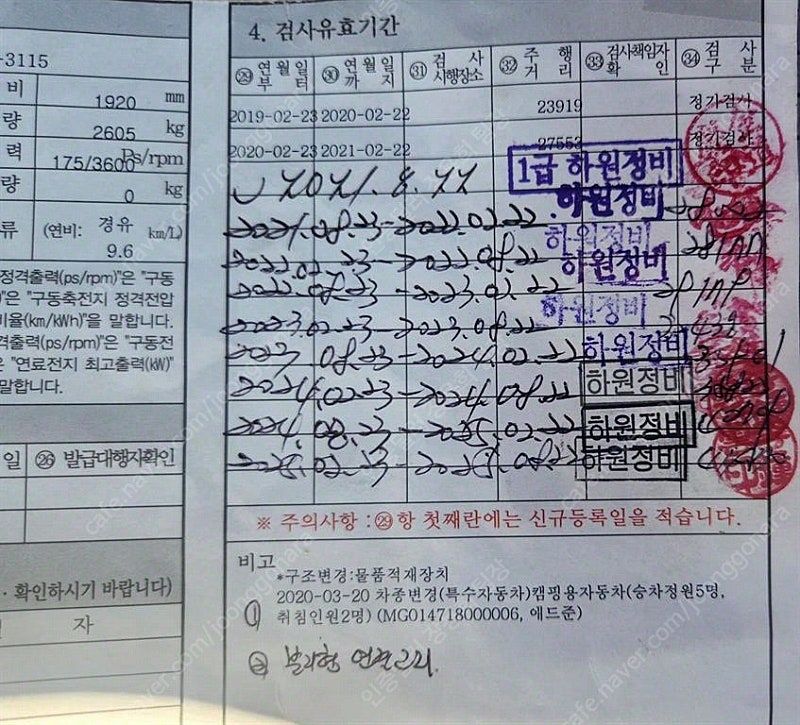 -3115
비 1920 mm
량 2605 kg
력 175/3600 Ps/rpm
량 0 kg
류 (연비: 경유 km/L)
9.6
정격출력(ps/rpm)"은 "구동
"은 "구동축전지 정격전압
비율(km/kWh)"을 말합니다.
격출력(ps/rpm)"은 "구동전
은 "연료전지 최고출력(kW)"
말합니다.
일 ㉖ 발급대행자확인
· 확인하시기 바랍니다)
자
4. 검사유효기간
㉙ 연월일부터 ㉚ 연월일까지 ㉛ 검사시행장소 ㉜ 주행거리 ㉝ 검사책임자확인 ㉞ 검사구분
2019-02-23 2020-02-22 23919 정기검사
2020-02-23 2021-02-22 27553 정기검사
1급 하원정비
2021.8.22
하원정비
2021.08.23-2022.02.22
하원정비
2022.02.23-2022.08.22 하원정비
2022.08.23-2023.02.22
하원정비
2023.02.23-2023.08.22
2023.08.23-2024.02.22 하원정비
2024.02.23-2024.08.22 하원정비
2024.08.23-2025.02.22 하원정비
2025.02.23-2025.08.22 하원정비
※ 주의사항 : ㉙항 첫째란에는 신규등록일을 적습니다.
비고
*구조변경:물품적재장치
① 2020-03-20 차종변경(특수자동차)캠핑용자동차(승차정원5명,
취침인원2명) (MG014718000006, 에드준)
② 분리형 연결고리.